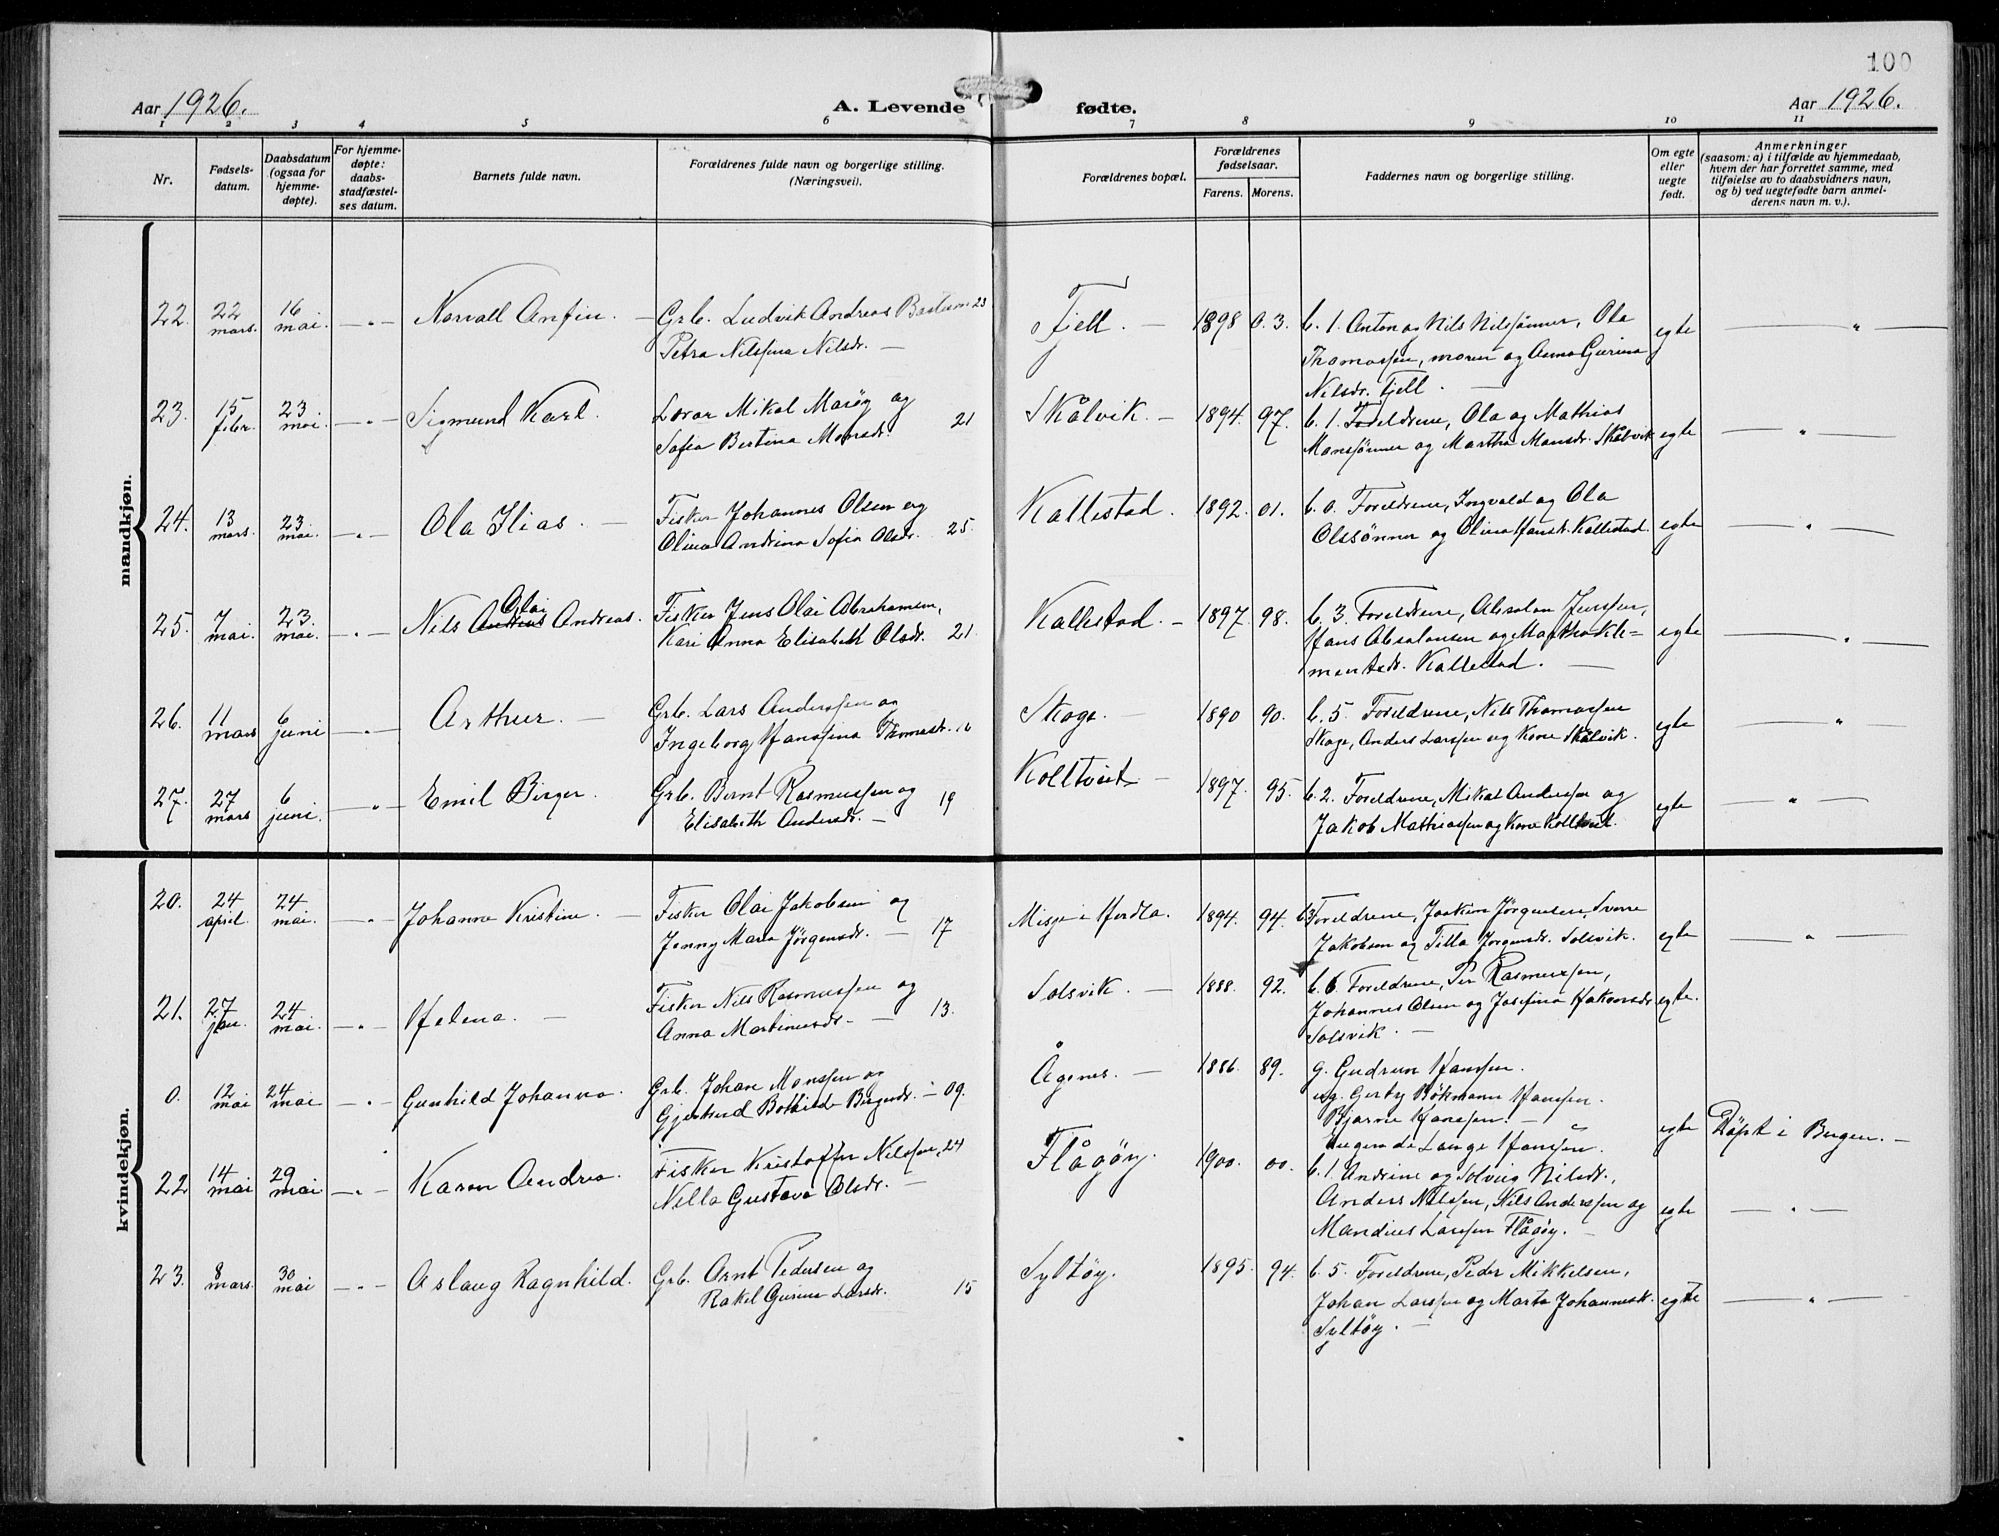 100
Aar 1926.
A. Levende fødte.
Aar 1926.
1 2 3 4 5 6 7 8 9 10 11
Nr.
Fødsels-
datum.
Daabsdatum
(ogsaa for
hjemme-
døpte).
For hjemme-
døpte:
daabs-
stadfæstel-
ses datum.
Barnets fulde navn.
Forældrenes fulde navn og borgerlige stilling.
(Næringsvei).
Forældrenes bopæl.
Forældrenes
fødselsaar.
Farens. Morens.
Faddernes navn og borgerlige stilling.
Om egte
eller
uegte
født.
Anmerkninger
(saasom: a) i tilfælde av hjemmedaab,
hvem der har forrettet samme, med
tilføielse av to daabsvidners navn,
og b) ved uegtefødte barn anmel-
derens navn m. v.).
mandkjøn.
22. 22 mars. 16 mai. Norvall Anfin. Grb. Ludvik Andreas 23
Petra Nilsina Nilsdr.
Fjell. 1898 0.3. b. 1. Anton og Nils Nilssønner, Ola
Thomassen, moren og Anna Gurina
Nilsdr. Fjell.
egte
23. 15 febr. 23 mai. Sigmund Karl. Lærar Mikal Marøy og
Sofia Bertina Monsdr. 21
Skålvik. 1894. 97. b. 1. Foreldrene, Ola og Mathias
Monssønner og Martha Monsdr. Skålvik
egte
24. 13 mars. 23 mai. Ola Ilias. Fisker Johannes Olsen og
Olina Andrina Sofia Olsdr. 25.
Kallestad. 1892. 01. b. 0. Foreldrene, Ingvald og Ola
Olssønner og Olina Hansdr. Kallestad.
egte
25. 7 mai. 23. mai. Olai
Nils Andreas Andreas. Fisker Jens Olai Abrahamsen,
Kari Anna Elisabeth Olsdr. 21
Kallestad. 1897. 98. b. 3. Foreldrene, Absalon Jenssen,
Hans Absalonsen og Martha Kle=
mentsdr. Kallestad.
egte
26. 11 mars 6 juni Arthur. Grb. Lars Anderssen og
Ingeborg Hansina Thomasdr. 16
Skoge. 1890 90. b. 5. Foreldrene, Nils Thomassen
Skoge, Anders Larssen og Kone Skålvik.
egte
27. 27 mars 6 juni. Emil Birger. Grb. Bernt Rasmussen og
Elisabeth Andersdr. 19
Kolltveit 1897. 95. b. 2. Foreldrene, Mikal Anderssen og
Jakob Mathiassen og Kone Kolltveit.
egte
kvindekjøn.
20. 24 april. 24 mai. Johanna Kristine. Fisker Olai Jakobsen og
Jenny Maria Jørgensdr. 17
Misje i Herdla. 1894. 94. b3 Foreldrene, Joakim Jørgensen, Sverre
Jakobsen og Tilla Jørgensdr. Solsvik.
egte
21. 27 jan. 24 mai. Helena. Fisker Nils Rasmussen og
Anna Martinusdr. 13.
Solsvik. 1888. 92. b. 6. Foreldrene, Per Rasmussen,
Johannes Olsen og Josefina Håkonsdr.
Solsvik.
egte.
0. 12 mai 24 mai Gunhild Johanna. Grb. Johan Monssen og
Gjertrud Bothilde Birgersdr. 09.
Ågenes. 1886. 89. g. Gudrun Hanssen.
ug. Gerby Bøkmann Hanssen.
Bjarne Hanssen.
Lange Hanssen
egte Døpt i Bergen.
22 14 mai 29 mai Karen Andrea. Fisker Kristoffer Nilssen, 24
Nilla Gustava Olsdr.
Flågøy. 1900. 00. b. 1. Andrine og Solveig Nilsdr.,
Anders Nilssen, Nils Anderssen og
Mandius Larssen Flågøy.
egte
23. 8 mars. 30 mai Aslaug Ragnhild. Grb. Arnt Pedersen og
Rakel Gurine Larsdr. 15
Syltøy. 1895. 94. b. 5. Foreldrene, Peder Mikkelsen,
Johan Larssen og Marta Johannesdr.
Syltøy.
egte